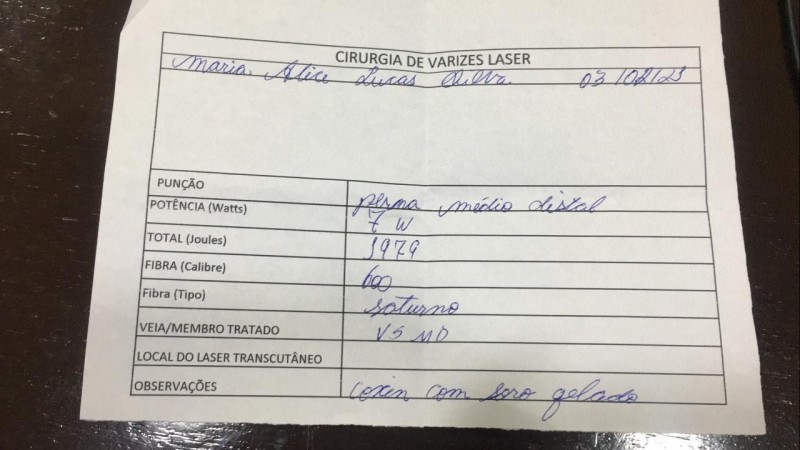 CIRURGIA DE VARIZES LASER
Maria Alice Lucas Silva 03/02/23
PUNÇÃO perna médio distal
POTÊNCIA (Watts) 7 W
TOTAL (Joules) 1979
FIBRA (Calibre) 600
Fibra (Tipo) saturno
VEIA/MEMBRO TRATADO VS MD
LOCAL DO LASER TRANSCUTÂNEO
OBSERVAÇÕES coxin com soro gelado